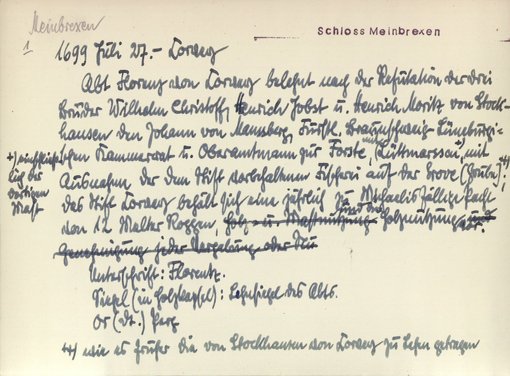 Meinbrexen
1
Schloss Meinbrexen
1699 Juli 27.- Corvey
Abt Florenz von Corvey belehnt nach der Refutation der drei
Brüder Wilhelm Christoff, Henrich Jobst u. Henrich Moritz von Stock-
hausen den Johann von Mansberg, Fürstl. Braunschweig-Lüneburgi-
schen Kammerrat u. Oberamtmann zur Forste, mit Lüttmarssen, mit
+) einschließ-
lich der
dortigen
Mast
Ausnahme der dem Stift vorbehaltenen Fischerei auf der Grove (Grube). ++)
Das Stift Corvey behält sich eine jährlich zu Michaelis fällige Pacht
von 12 Malter Roggen, Holz- u. Mastnutzung Holznutzung vor.
Genehmigung jeder Vergebung oder
Unterschrift: Florentz.
Siegel (in Holzkapsel): Lehnsiegel des Abts.
Or (dt.) Perg.
++) wie es früher die von Stockhausen von Corvey zu Lehen getragen